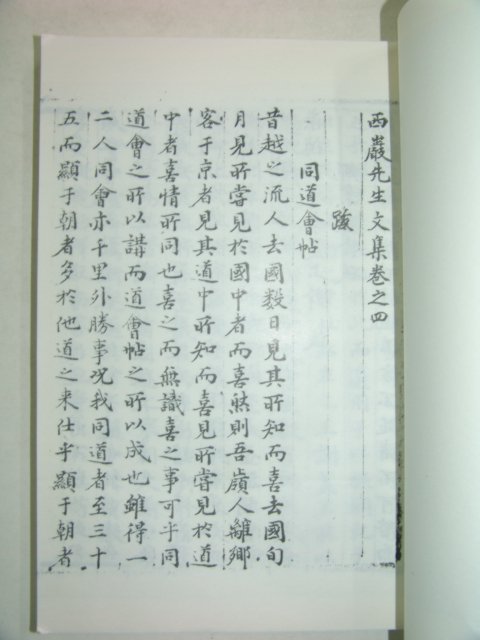 西巖先生文集卷之四
跋
同道會帖
昔越之流人去國數日見其所知而喜去國旬
月見所嘗見於國中者而喜然則吾嶺人離鄉
客于京者見其道中所知而喜見所嘗見於道
中者喜情所同也喜之而無識喜之事可乎同
道會之所以講而道會帖之所以成也雖得一
二人同會亦千里外勝事况我同道者至三十
五而顯于朝者多於他道之来仕半顯于朝者